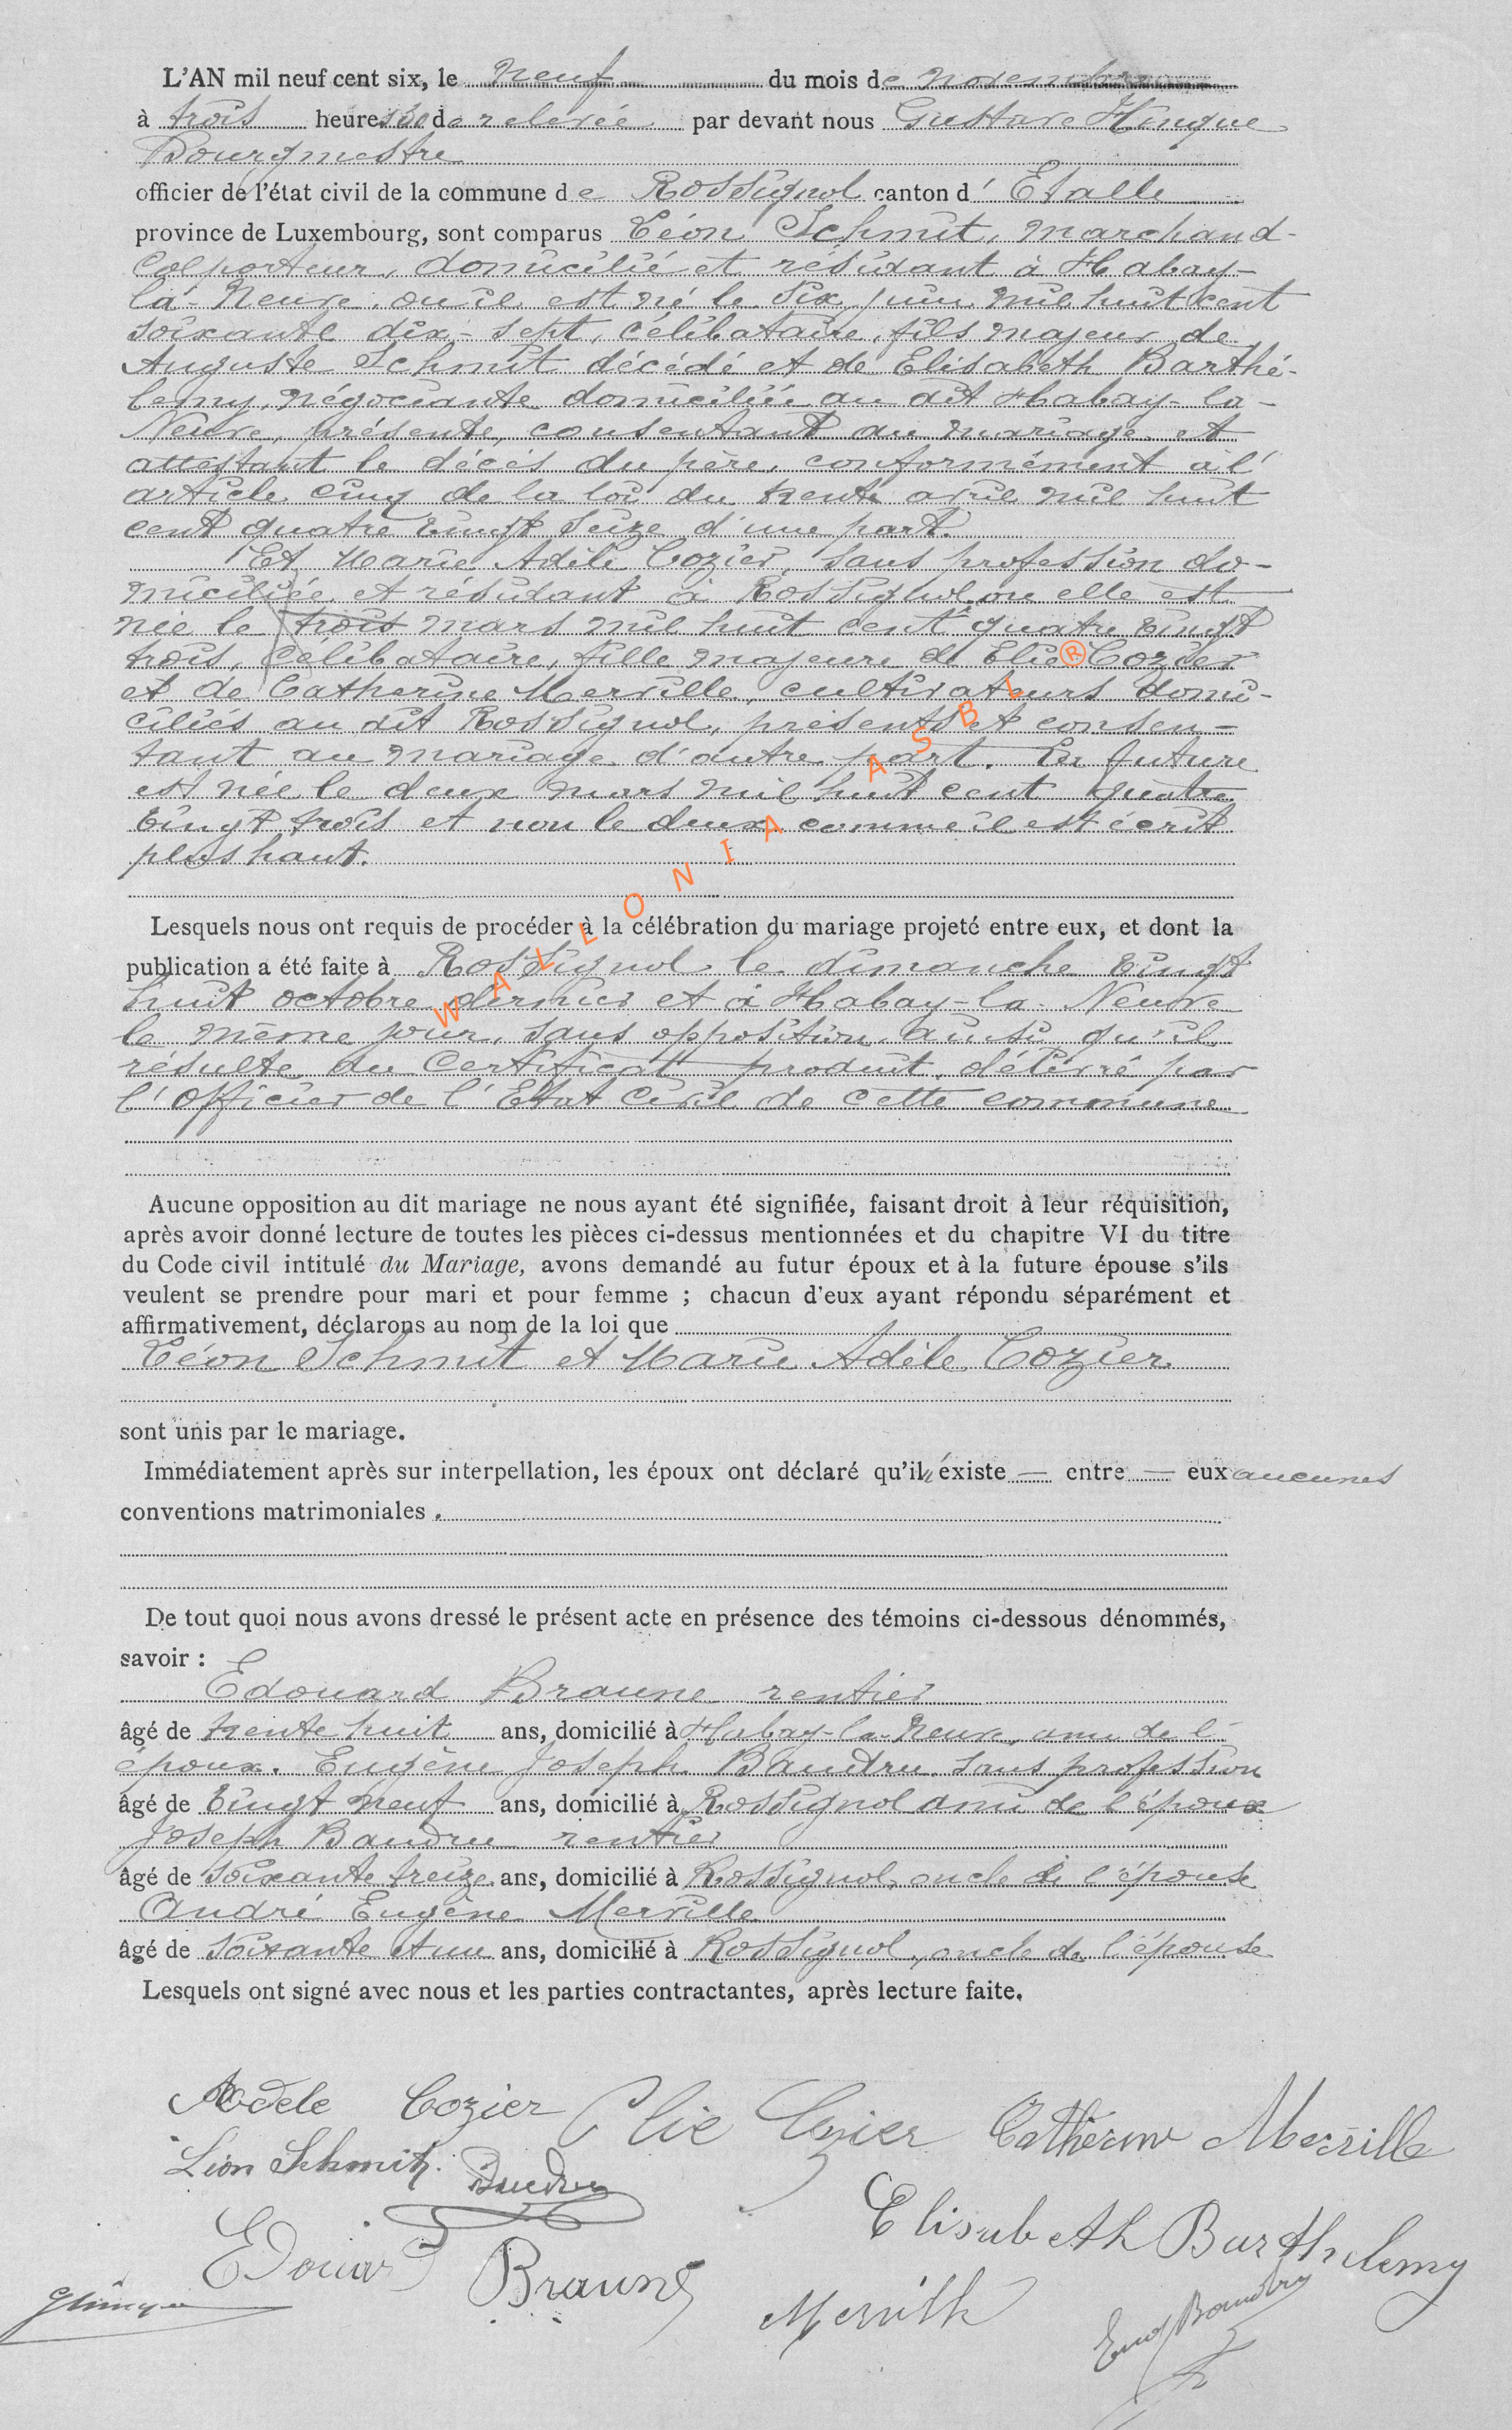 L'AN mil neuf cent six, le neuf du mois de novembre
à trois heures de relevée par devant nous Gustave Hinque
Bourgmestre
officier de l'état civil de la commune de Rossignol canton d' Etalle
province de Luxembourg, sont comparus Léon Schmit, marchand-
colporteur, domicilié et résidant à Habay-
la-Neuve où il est né le six juin mil huit cent
soixante dix-sept, célibataire, fils majeur de
Auguste Schmit décédé et de Elisabeth Barthé-
lemy, négociante domiciliée au dit Habay-la-
Neuve, présente, consentant au mariage et
attestant le décès du père, conformément à l'
article cinq de la loi du trente avril mil huit
cent quatre vingt seize d'une part.
Et Marie Adèle Cozier, sans profession do-
miciliée et résidant à Rossignol ou elle est
née le trois mars mil huit cent quatre vingt
trois, célibataire, fille majeure de Elie Cozier
et de Catherine Merville, cultivateurs domi-
ciliés au dit Rossignol, présents et consen-
tant au mariage d'autre part. La future
est née le deux mars mil huit cent quatre
vingt trois et non le deux comme il est écrit
plus haut.
Lesquels nous ont requis de procéder à la célébration du mariage projeté entre eux, et dont la
publication a été faite à Rossignol le dimanche vingt
huit octobre dernier et à Habay-la-Neuve
le même jour, sans opposition, ainsi qu'il
résulte du certificat produit, délivré par
l'officier de l'Etat Civil de cette commune
WALLONIA ASBL ®
Aucune opposition au dit mariage ne nous ayant été signifiée, faisant droit à leur réquisition,
après avoir donné lecture de toutes les pièces ci-dessus mentionnées et du chapitre VI du titre
du Code civil intitulé du Mariage, avons demandé au futur époux et à la future épouse s'ils
veulent se prendre pour mari et pour femme ; chacun d'eux ayant répondu séparément et
affirmativement, déclarons au nom de la loi que
Léon Schmit et Marie Adèle Cozier
sont unis par le mariage.
Immédiatement après sur interpellation, les époux ont déclaré qu'il n'existe — entre — eux aucunes
conventions matrimoniales .
De tout quoi nous avons dressé le présent acte en présence des témoins ci-dessous dénommés,
savoir :
Edouard Braune rentier
âgé de trente huit ans, domicilié à Habay-la-Neuve, ami de l'
époux. Eugène Joseph Baudru sans profession
âgé de vingt neuf ans, domicilié à Rossignol ami de l'époux
Joseph Baudru rentier
âgé de soixante treize ans, domicilié à Rossignol, oncle de l'épouse
André Eugène Merville
âgé de soixante et un ans, domicilié à Rossignol, oncle de l'épouse
Lesquels ont signé avec nous et les parties contractantes, après lecture faite.
Adele Cozier Elie Cozier Catherine Merville
Léon Schmit. Baudru
Elisabeth Barthelemy
Edouard Braune
GHinque
Merville
Eug Baudru